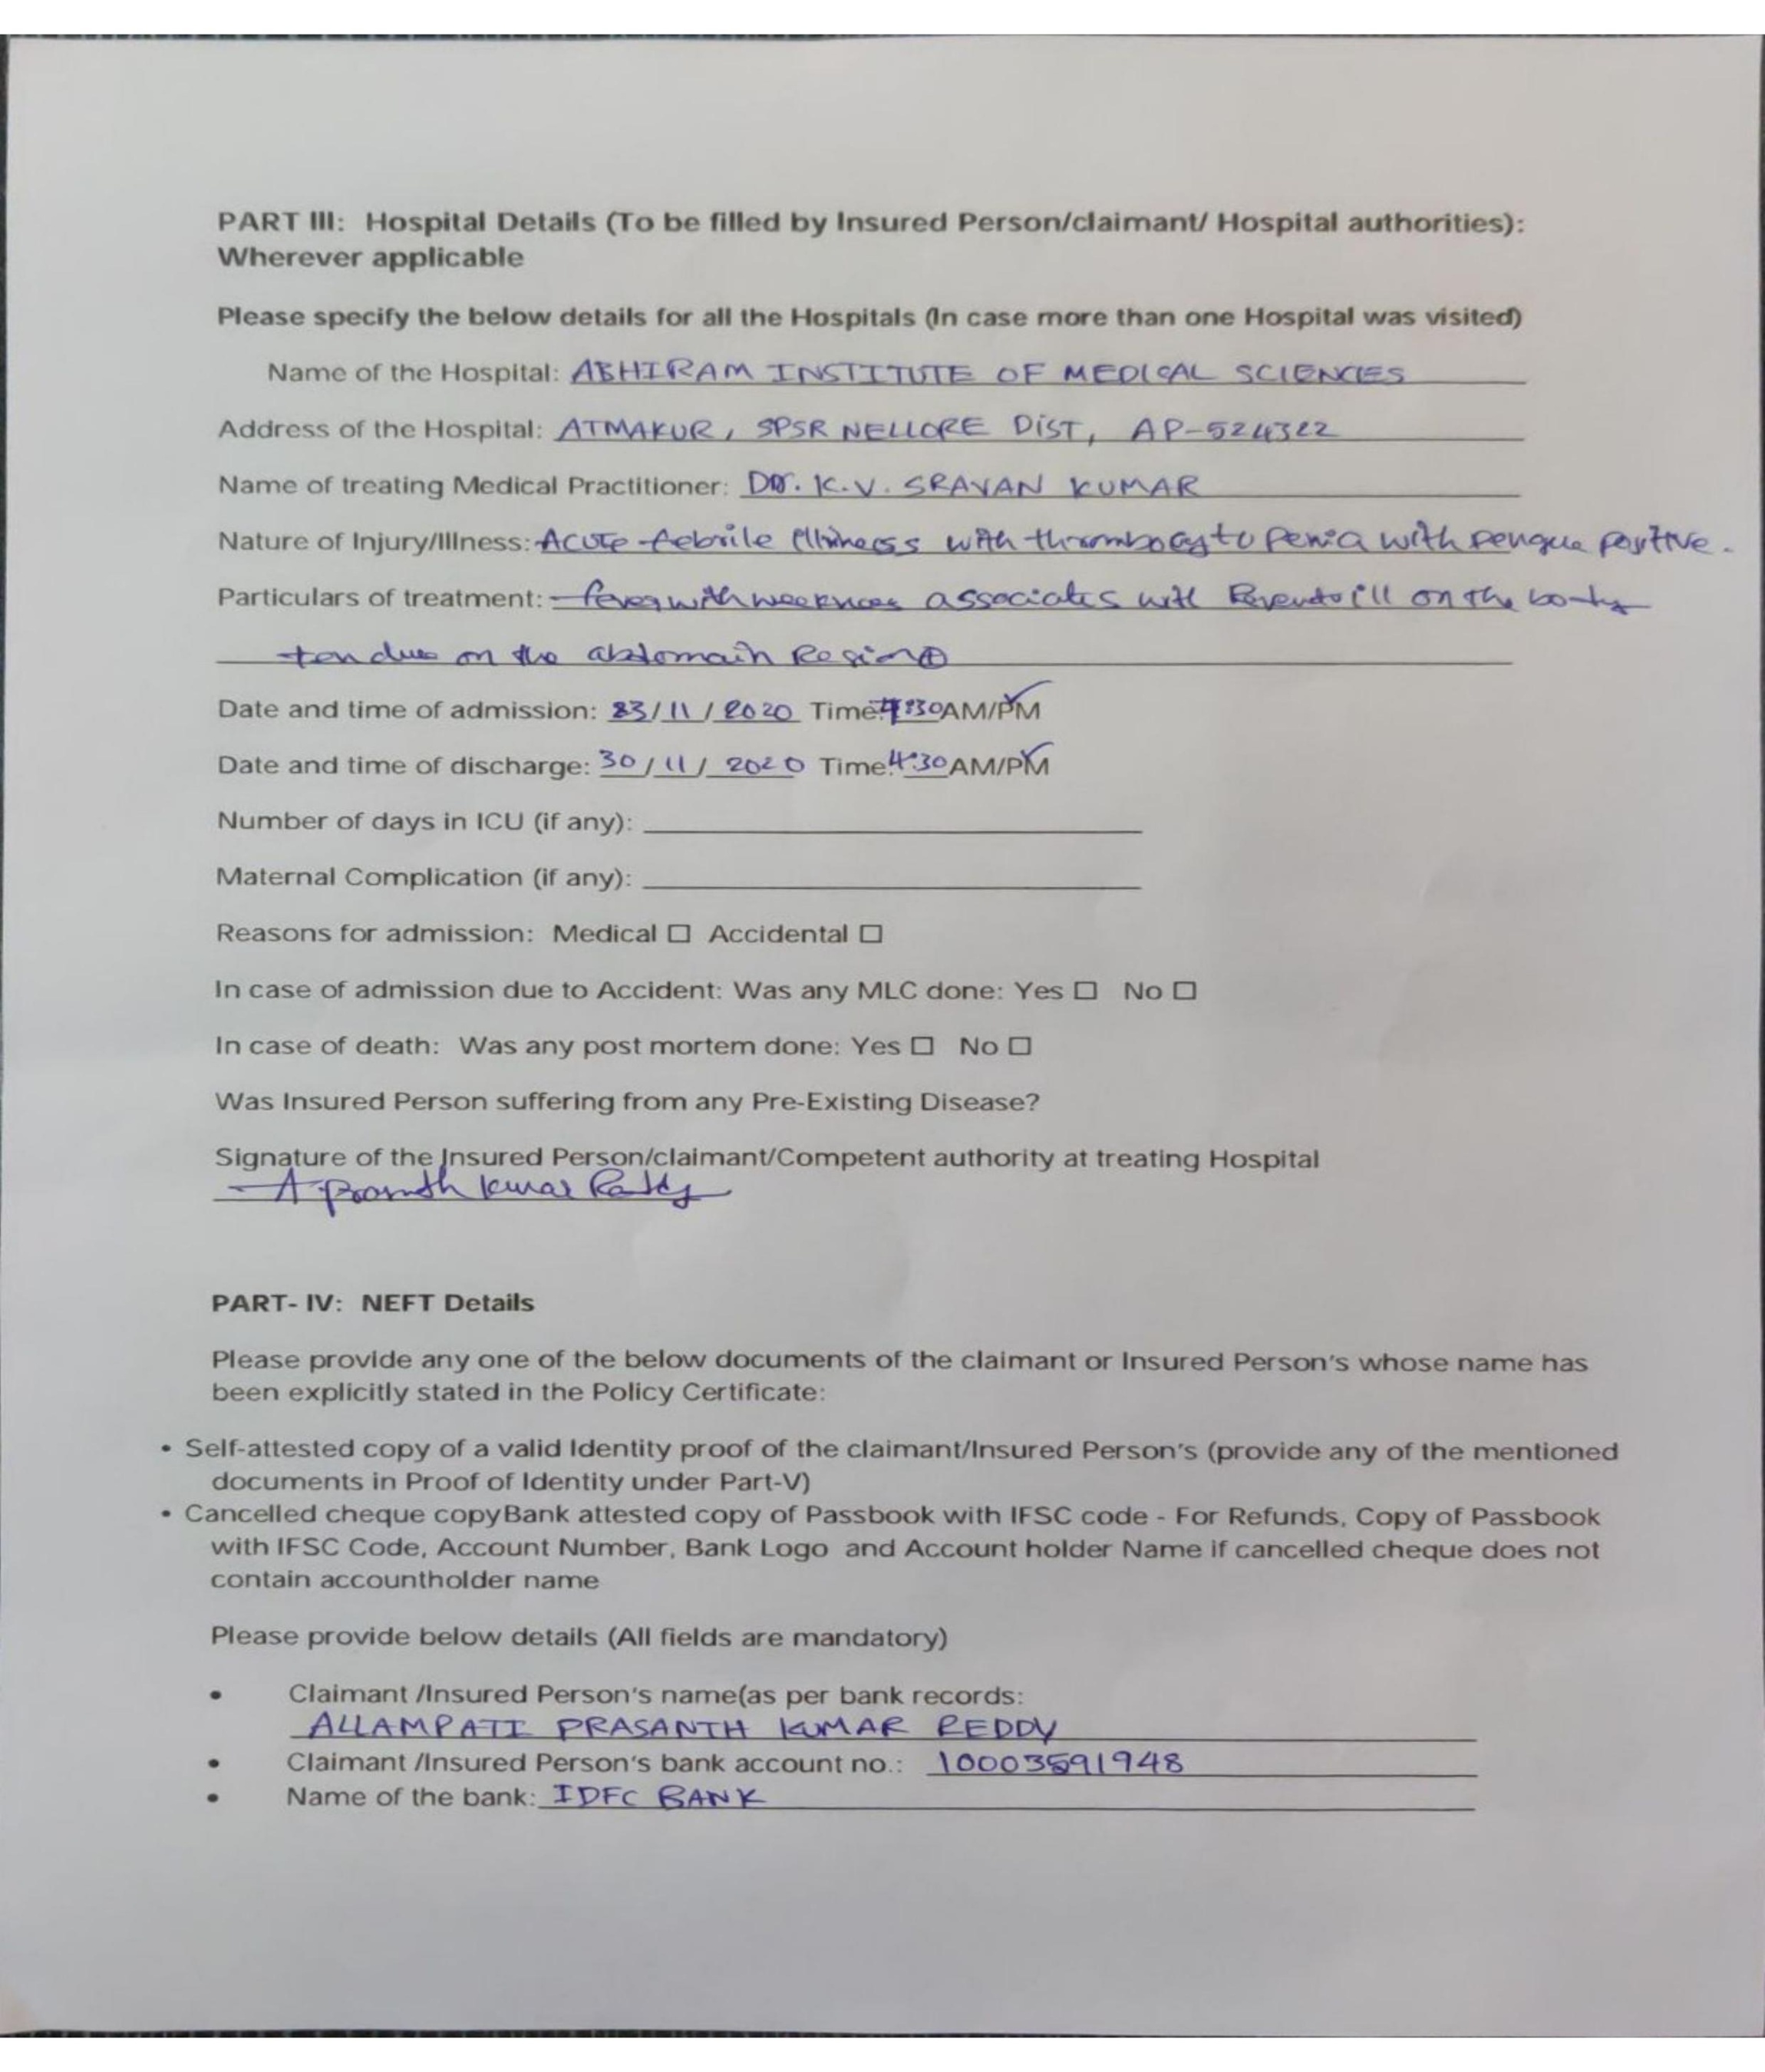 PART III: Hospital Details (To be filled by Insured Person/claimant/ Hospital authorities):
Wherever applicable
Please specify the below details for all the Hospitals (In case more than one Hospital was visited)
Name of the Hospital: ABHIRAM INSTITUTE OF MEDICAL SCIENCES
Address of the Hospital: ATMAKUR, SPSR NELLORE DIST, AP-524322
Name of treating Medical Practitioner: DR. K.V. SRAVAN KUMAR
Nature of Injury/Illness: Acute febrile with thrombocyto penia with Dengue
Particulars of treatment: fever with associates with on the body
on the Region
Date and time of admission: 23/11/2020 Time: 4:30 AM/PM
Date and time of discharge: 30/11/2020 Time: 4:30 AM/PM
Number of days in ICU (if any):
Maternal Complication (if any):
Reasons for admission: Medical ☐ Accidental ☐
In case of admission due to Accident: Was any MLC done: Yes ☐ No ☐
In case of death: Was any post mortem done: Yes ☐ No ☐
Was Insured Person suffering from any Pre-Existing Disease?
Signature of the Insured Person/claimant/Competent authority at treating Hospital
A Kumar Reddy
PART- IV: NEFT Details
Please provide any one of the below documents of the claimant or Insured Person's whose name has
been explicitly stated in the Policy Certificate:
• Self-attested copy of a valid Identity proof of the claimant/Insured Person's (provide any of the mentioned
documents in Proof of Identity under Part-V)
• Cancelled cheque copyBank attested copy of Passbook with IFSC code - For Refunds, Copy of Passbook
with IFSC Code, Account Number, Bank Logo and Account holder Name if cancelled cheque does not
contain accountholder name
Please provide below details (All fields are mandatory)
• Claimant /Insured Person's name(as per bank records:
ALLAMPATI PRASANTH KUMAR REDDY
• Claimant /Insured Person's bank account no.: 10003591948
• Name of the bank: IDFC BANK